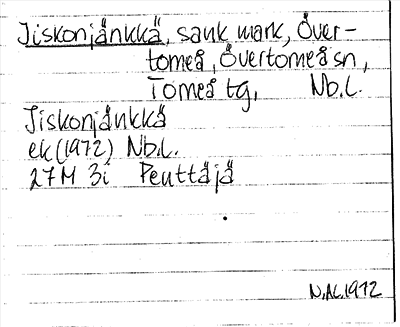 Jiskonjånkkä, sank mark, Över-
torneå, Övertorneå sn,
Torneå tg, Nb.l.
Jiskonjånkkä
ek (1972) Nb.l.
27M 3i Peuttäjä
N.Al.1972